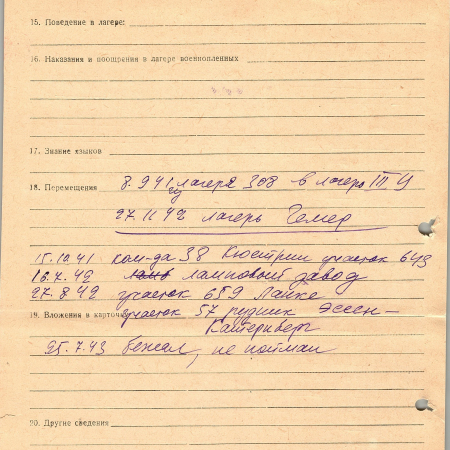 15. Поведение в лагере:
16. Наказания и поощрения в лагере военнопленных
17. Знание языков
18. Перемещения 8.9 41 из лагеря 308 в лагерь III Ц
27 11 42 лагерь Гемер
15.10 41 ком-да 38 Кюстрин участок 643
16.7.42 ламповый завод
27.8 42 участок 659 Ланке
19. Вложения в карточку участок 57 рудник Эссен-
Катернберг
25.7.43 бежал, не пойман
20. Другие сведения